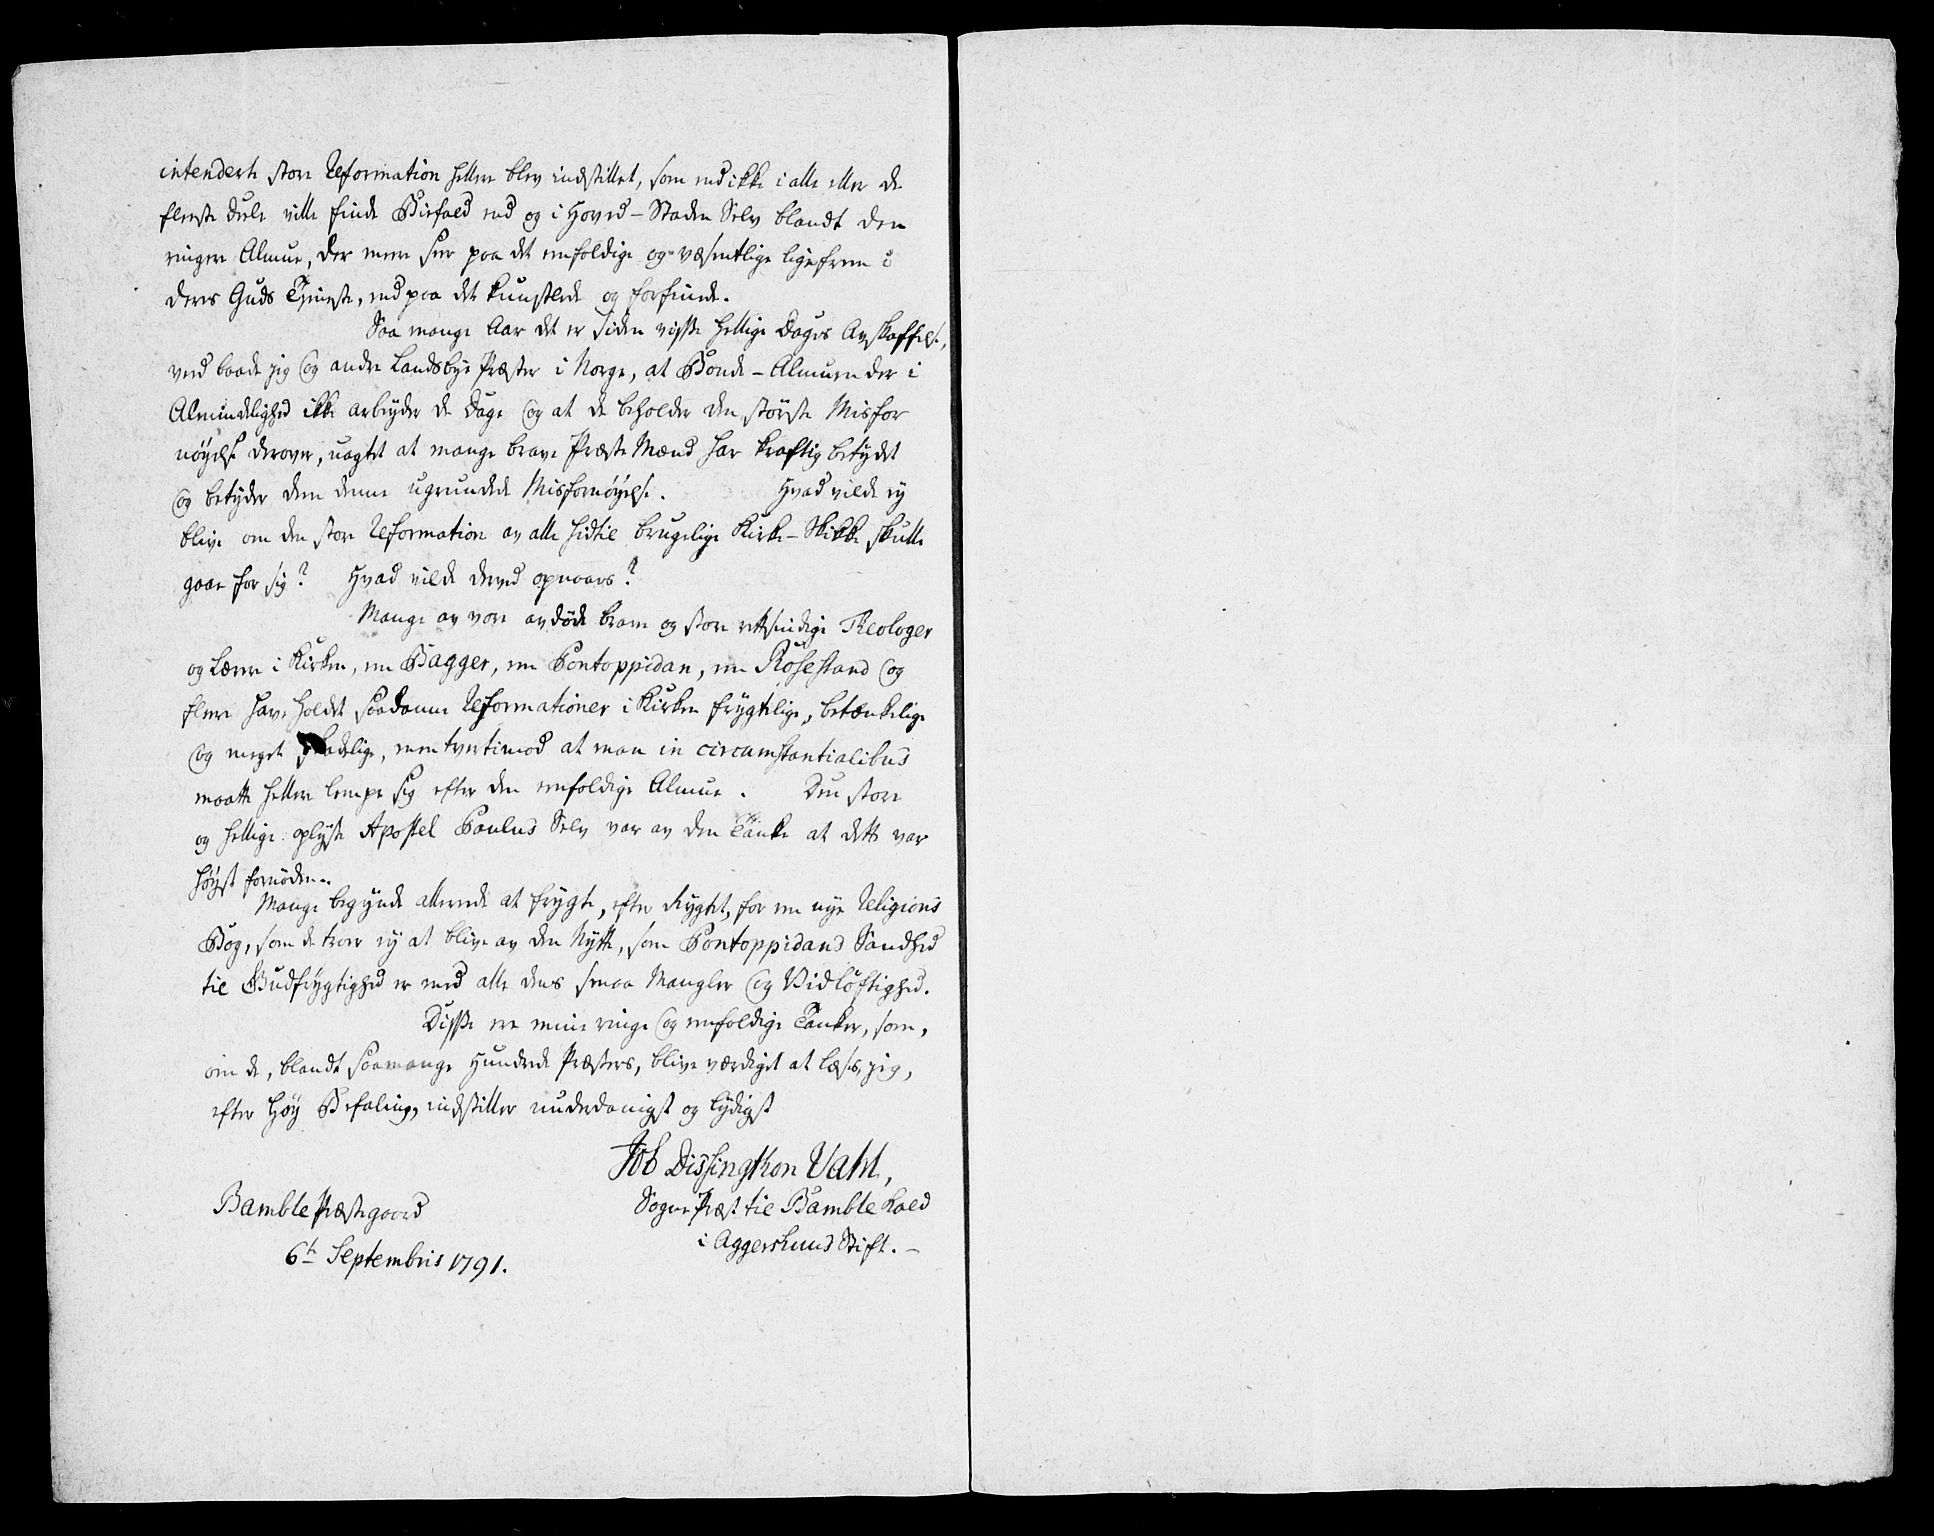 intenderte store Reformation heller blev indstillet, som end ikke i alle eller de
fleeste Deele ville finde Biefald end og i Hoved-Staden Selv blandt den
ringere Almue, der meere seer paa det eenfoldige og væsentlige ligefrem i
deres Guds Tjeneste, end paa det kunstlede og forfinede.
Saa mange Aar det er siden visse hellige Dages Avskaffelse,
veed baade jeg og andre Landsbye Præster i Norge, at Bonde-Almuen der i
Almindelighed ikke arbeyder de Dage og at de beholder den störste Misfor
nöyelse derover, uagtet at mange brave Præste Mænd har kraftig betydet
og betyder dem denne ugrundede Misfornöyelse. Hvad vilde ey
blive om den store Reformation av alle hidtil brugelige Kirke-Skikke skulle
gaae for sig? Hvad vilde derved opnaaes?
Mange av vore avdöde brave og store rettsindige Theologer
og Lærere i Kirken, en Bagger, en Pontoppidan, en Rosestand og
fleere have holdet saadanne Reformationer i Kirken frygtelige, betænkelige
og meget skadelige, men tvertimod at man in circumstantialibus
maatte heller lempe sig efter den eenfoldige Almue. Den store
og hellige oplyste Apostel Paulus Selv var av den Tanke at dette var
höyst fornöden.
Mange begynde allerede at frygte, efter Rygtet, for en nye Religions
Bog, som de troer ey at blive av den Nytte, som Pontoppidans Sandhed
til Gudfrygtighed er med alle dens smaa Mangler og Vidlöftighed.
Disse ere mine ringe og eenfoldige Tanker, som,
om de, blandt saamange Hundrede Præsters, blive værdiget at læses, jeg,
efter Höy Befaling, indstiller underdanigst og lydigst
Job Dissingthon Vahl,
Bamble Præstegaard
Sogne Præst til Bamble Kald
i Aggershuus Stift. -
6te Septembris 1791.